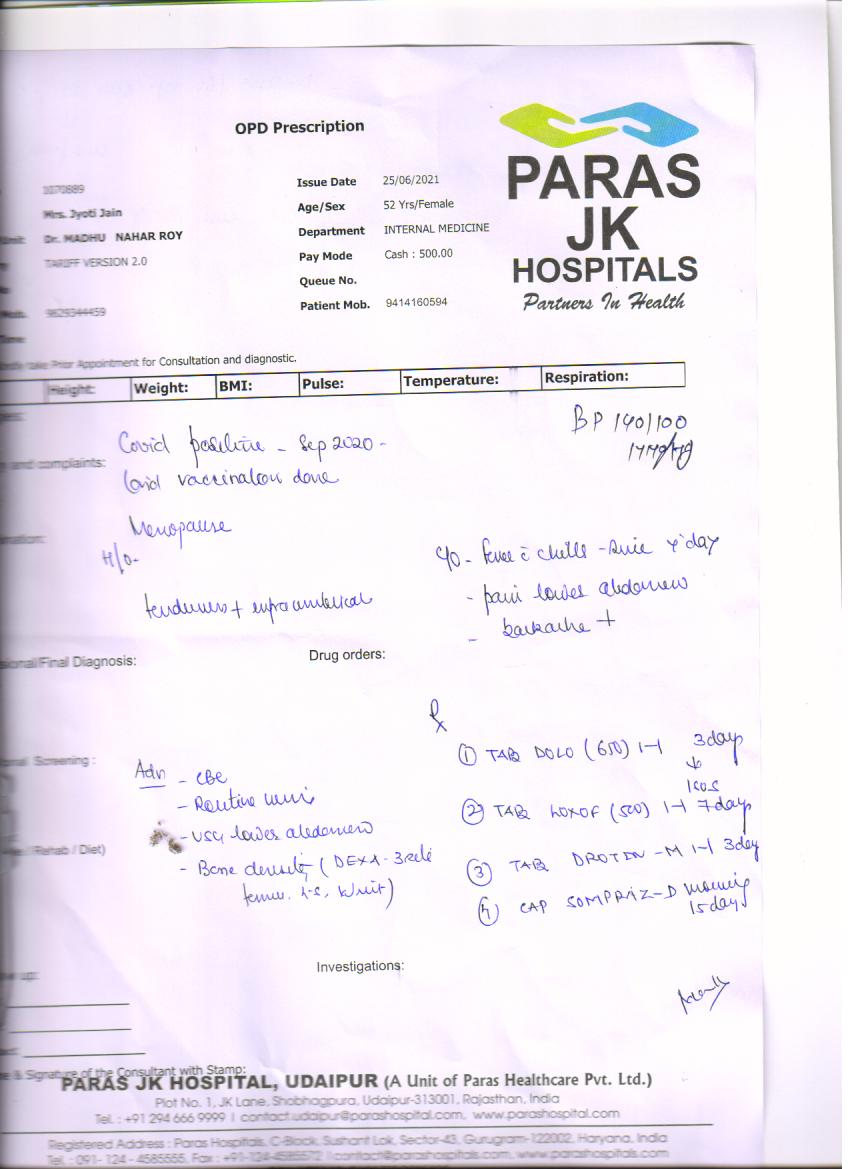 OPD Prescription
PARAS
JK
HOSPITALS
Partners In Health
1070889
Mrs. Jyoti Jain
Dr. MADHU NAHAR ROY
TARIFF VERSION 2.0
9829344459
Time
Issue Date 25/06/2021
Age/Sex 52 Yrs/Female
Department INTERNAL MEDICINE
Pay Mode Cash : 500.00
Queue No.
Patient Mob. 9414160594
take Prior Appointment for Consultation and diagnostic.
Height: Weight: BMI: Pulse: Temperature: Respiration:
BP 140/100
and complaints:
Covid positive - Sep 2020 -
Covid vaccination done
Menopause
H/O-
tenderness + infraumbilical
C/O - fever c chills - since 4 day
- pain lower abdomen
- backache +
Final Diagnosis:
Drug orders:
Rx
① TAB DOLO (650) 1-1 3day
↓
SOS
② TAB LOXOF (500) 1-1 7days
③ TAB DROTIN -M 1-1 3day
④ CAP SOMPRAZ-D morning
15days
Screening :
/ Rehab / Diet)
Adv - CBC
- Routine urine
- USG lower abdomen
- Bone density (DEXA - 3
L-S, Wrist)
Investigations:
up:
& Signature of the Consultant with Stamp:
PARAS JK HOSPITAL, UDAIPUR (A Unit of Paras Healthcare Pvt. Ltd.)
Plot No. 1, JK Lane, Shobhagpura, Udaipur-313001, Rajasthan, India
Tel. : +91 294 666 9999 | contact.udaipur@parashospital.com, www.parashospital.com
Registered Address : Paras Hospitals, C-Block, Sushant Lok, Sector-43, Gurugram-122002, Haryana, India
Tel. : 091- 124 - 4585555, Fax : +91-124-4585572 | contact@parashospitals.com, www.parashospitals.com